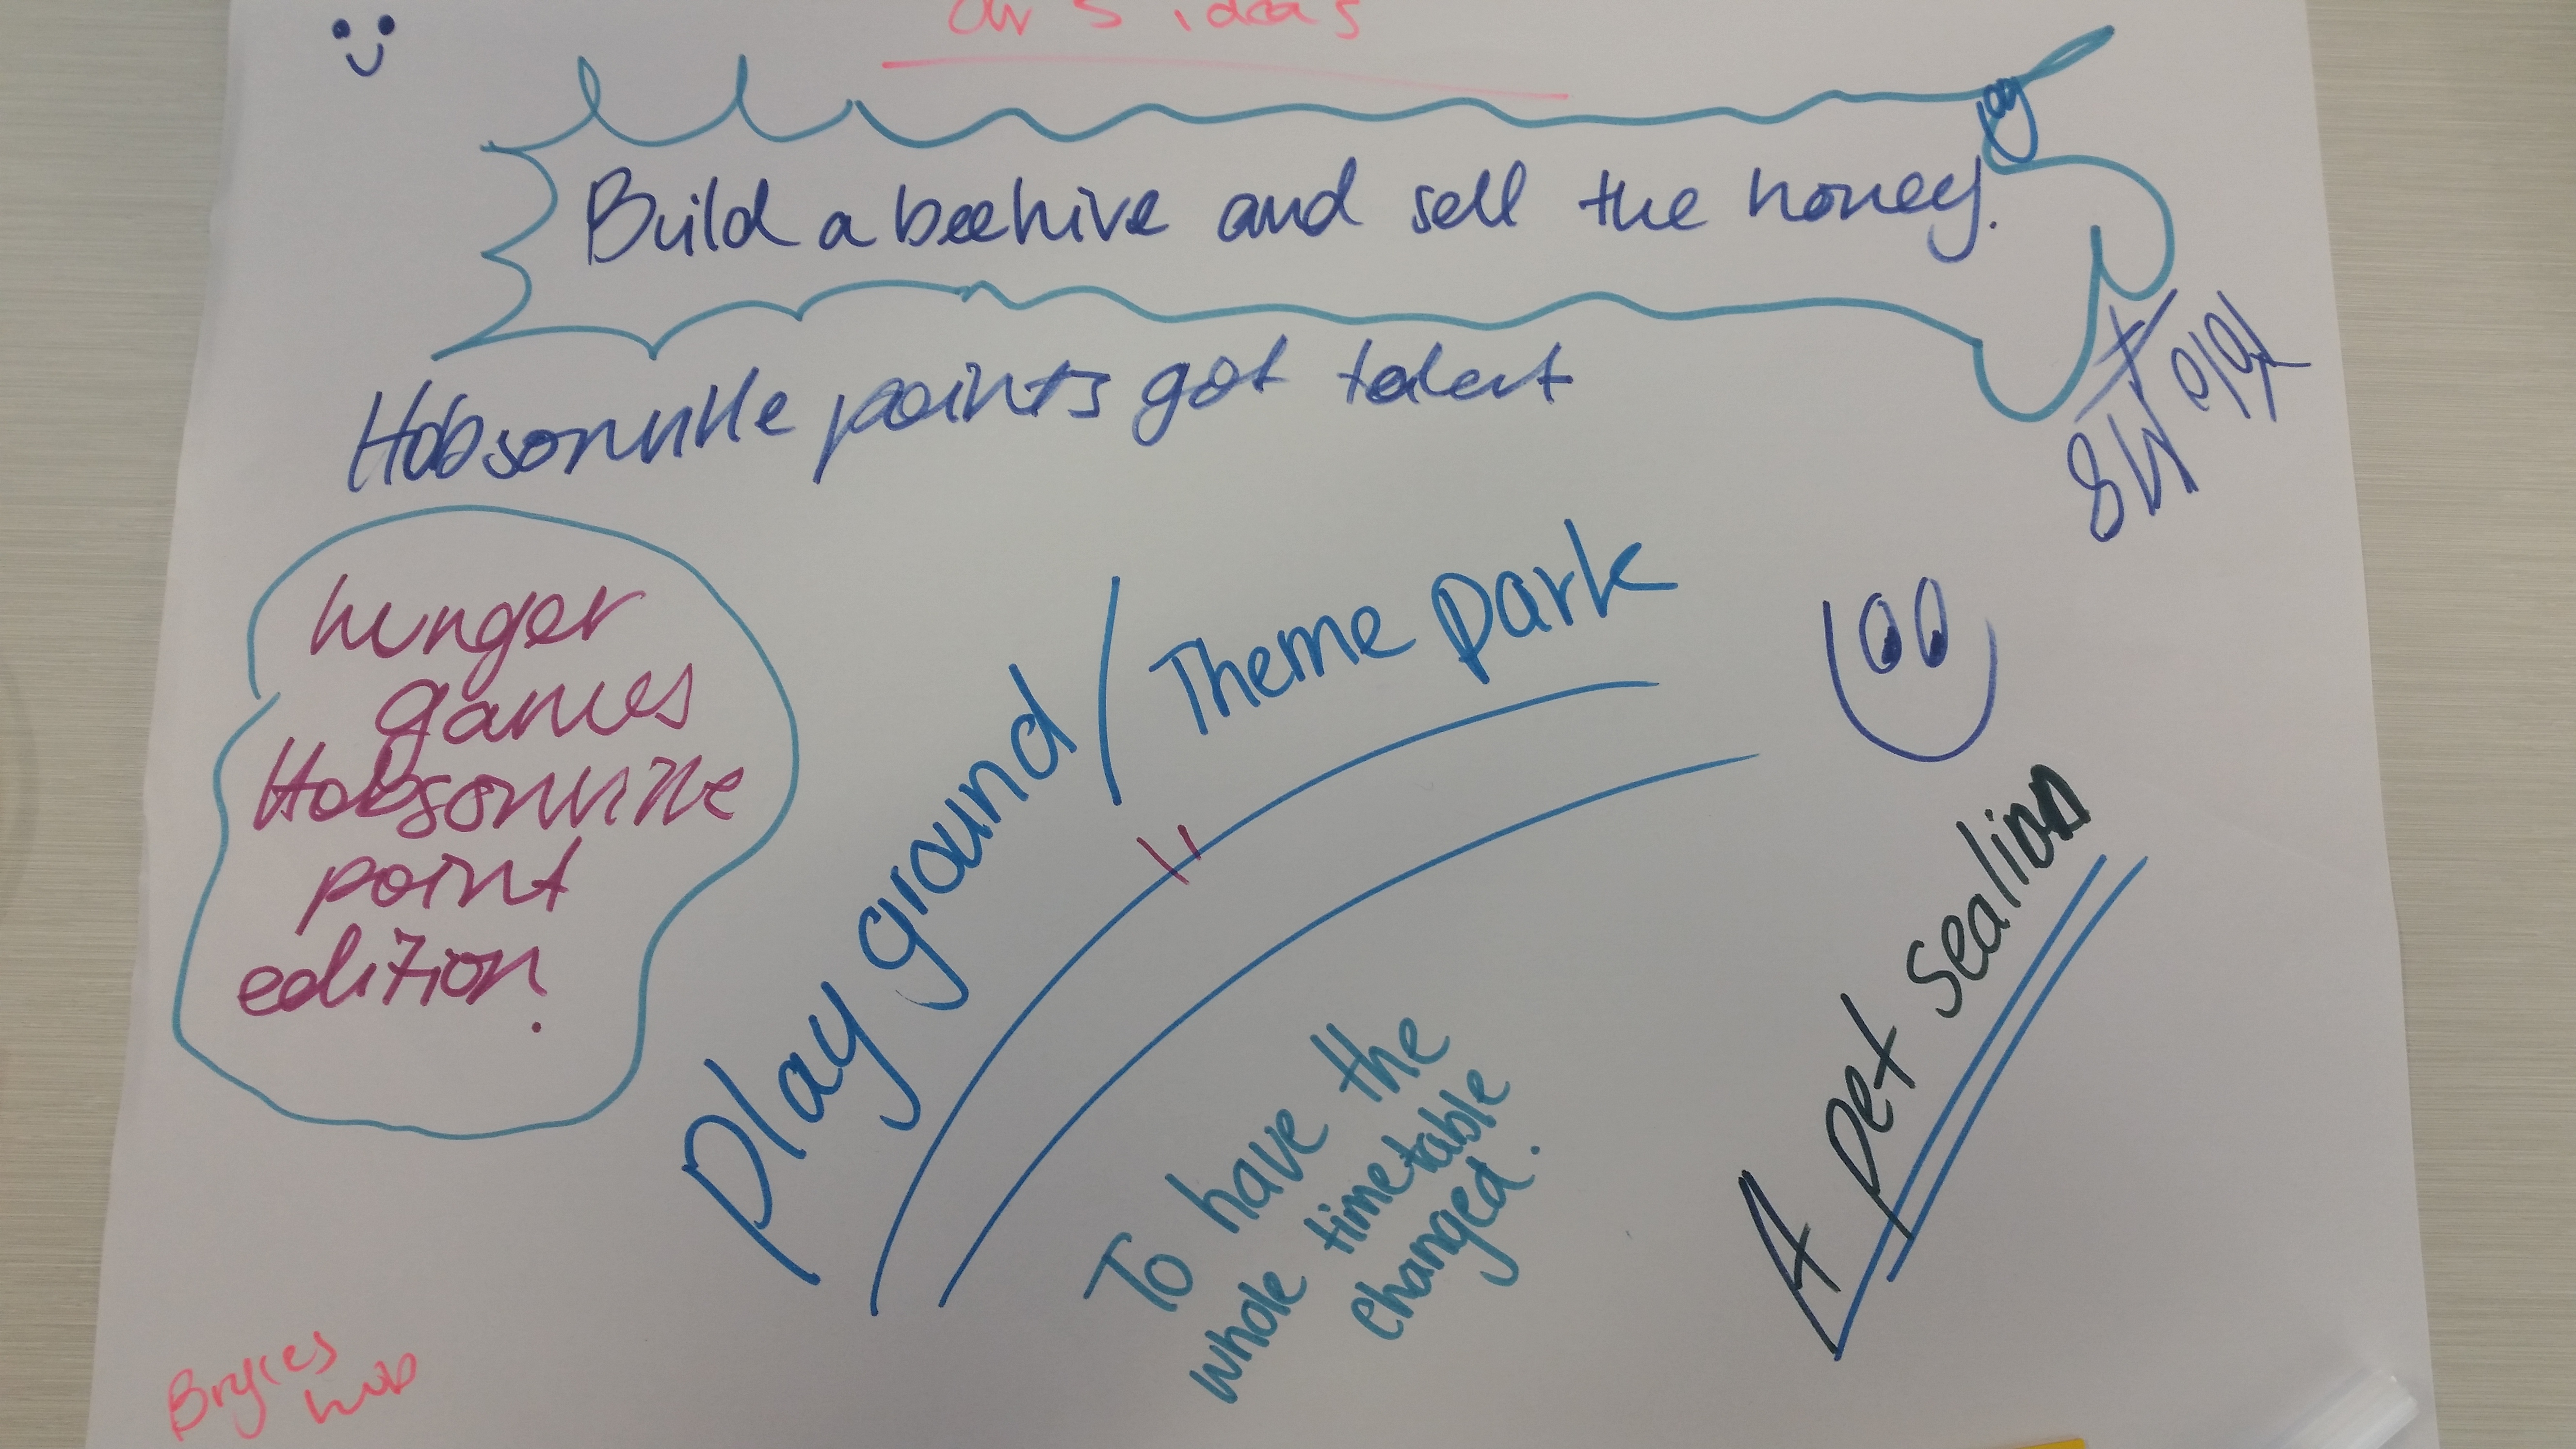 our 5 ideas
Build a beehive and sell the honey.
Hobsonville points got talent
hunger
games
Hobsonville
point
edition.
Play ground / Theme park
To have the
whole timetable
changed.
A pet sealion
Bryces
hub